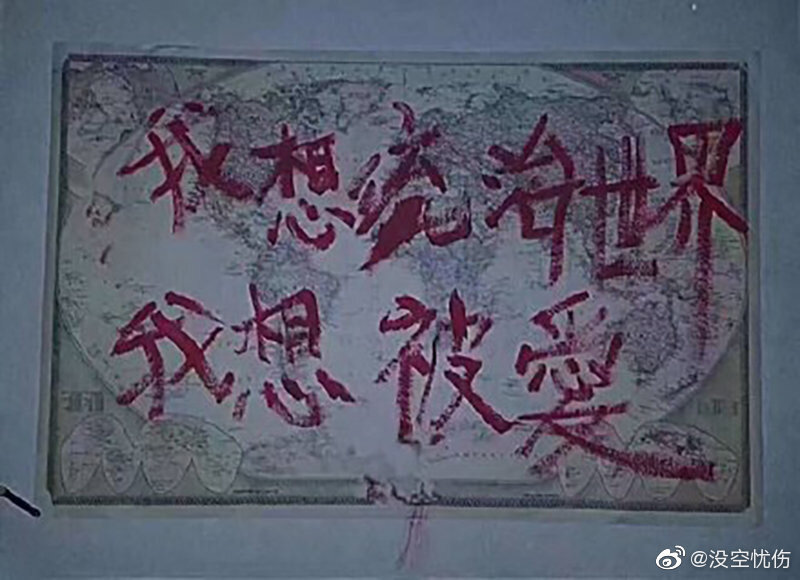 我想统治世界
我想被爱
@没空忧伤